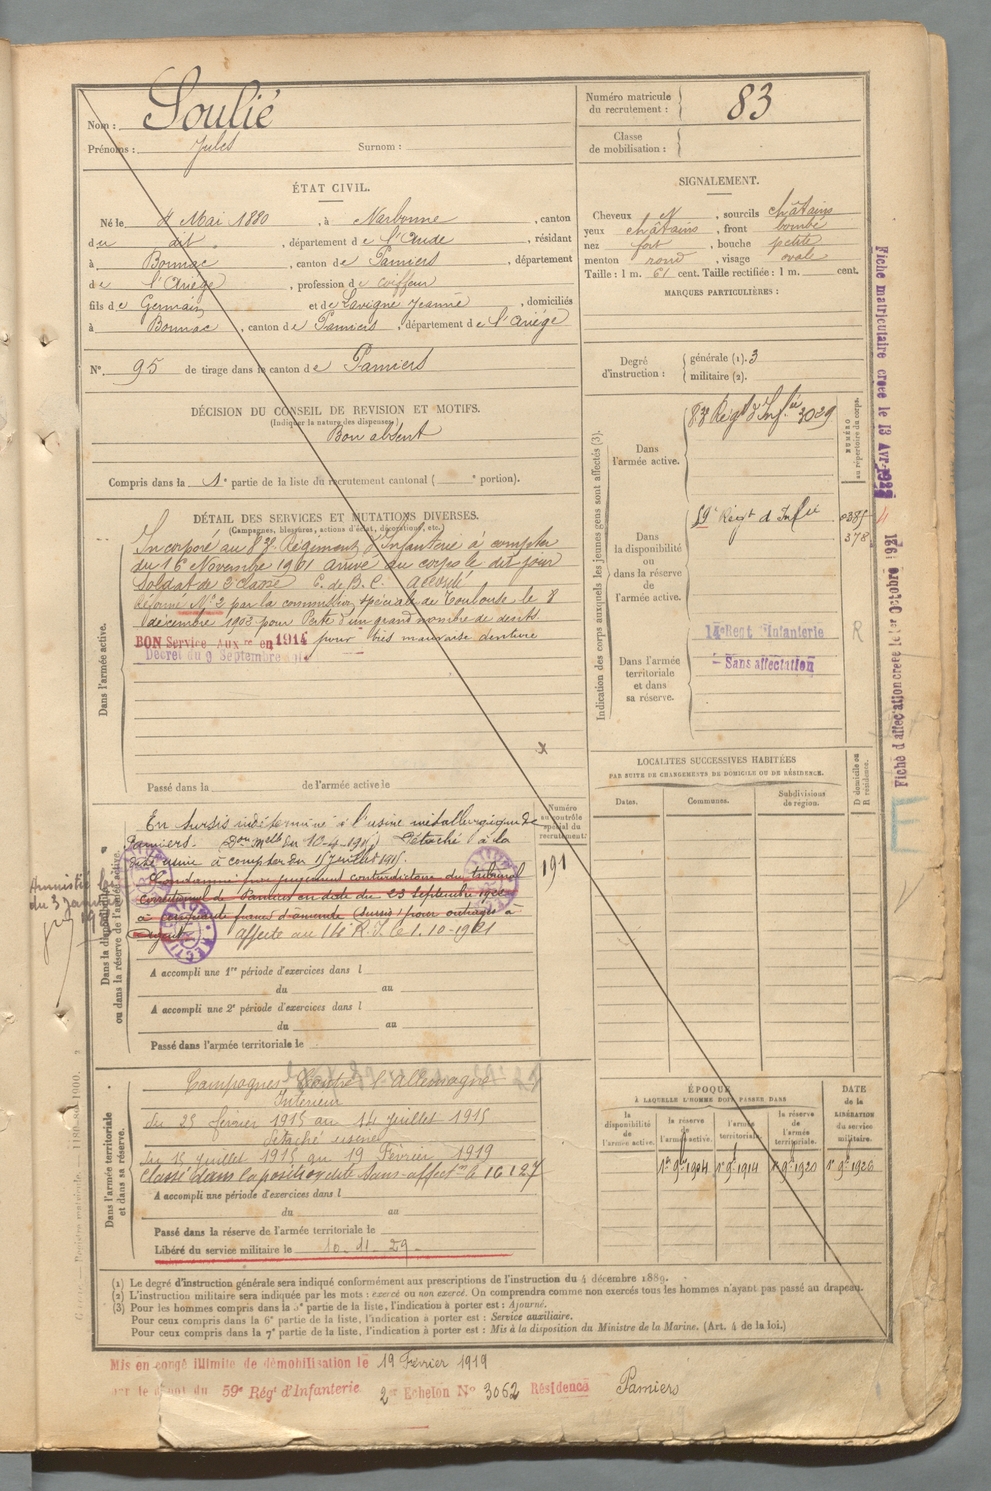 Nom : Soulié
Prénoms : Jules Surnom :
Numéro matricule du recrutement : 83
Classe de mobilisation :
ÉTAT CIVIL.
Né le 4 Mai 1880, à Narbonne, canton
du dit, département de l'Aude, résidant
à Bonnac, canton de Pamiers, département
de l'Ariège, profession de coiffeur
fils de Germain et de Lavigne Jeanne, domiciliés
à Bonnac, canton de Pamiers, département de l'Ariège
N° 95 de tirage dans le canton de Pamiers
SIGNALEMENT.
Cheveux N, sourcils châtains
yeux châtains, front bombé
nez fort, bouche petite
menton rond, visage ovale
Taille : 1 m. 61 cent. Taille rectifiée : 1 m. cent.
MARQUES PARTICULIÈRES :
Degré d'instruction : générale (1). 3
militaire (2).
DÉCISION DU CONSEIL DE REVISION ET MOTIFS.
(Indiquer la nature des dispenses)
Bon absent
Compris dans la 1e partie de la liste du recrutement cantonal ( e portion).
DÉTAIL DES SERVICES ET MUTATIONS DIVERSES.
(Campagnes, blessures, actions d'éclat, décorations, etc.)
Dans l'armée active.
Incorporé au 83e Régiment d'Infanterie à compter
du 16 Novembre 1901 arrivé au corps le dit jour
Soldat de 2e classe C. de B. C. accordé
Réformé N° 2 par la commission spéciale de Toulouse le 8
décembre 1903 pour Perte d'un grand nombre de dents.
BON Service Auxre en 1914 pour très mauvaise denture
Décret du 9 Septembre 1914
Passé dans la de l'armée active le
Indication des corps auxquels les jeunes gens sont affectés (3).
NUMÉRO au répertoire du corps.
Dans l'armée active.
83e Régt d'Infie 3029
Dans la disponibilité ou dans la réserve de l'armée active.
59e Régt d'Infie
378
Dans l'armée territoriale et dans sa réserve.
14e Regt d'Infanterie R
- Sans affectation
Fiche matriculaire créée le 13 Avr
Fiche d'affectation créée le 1er Octobre 1921
LOCALITÉS SUCCESSIVES HABITÉES
PAR SUITE DE CHANGEMENTS DE DOMICILE OU DE RÉSIDENCE.
Dates. Communes. Subdivisions de région. D domicile ou R résidence.
Numéro au contrôle spécial du recrutement.
191
Dans la disponibilité ou dans la réserve de l'armée active.
En sursis indéterminé à l'usine métallurgique de
Pamiers. Don Melle du 10-4-1915 Détaché à la
dite usine à compter du 15 Juillet 1915.
Condamné par jugement contradictoire du tribunal
correctionnel de Pamiers en date du 23 Septembre 1920
à cinquante francs d'amende (sursis) pour outrages à
agent Affecté au 14e R.I. le 1.10-1921
Amnistié loi
du 3 Janvier
A accompli une 1re période d'exercices dans l
du au
A accompli une 2e période d'exercices dans l
du au
Passé dans l'armée territoriale le
Dans l'armée territoriale et dans sa réserve.
Campagnes Contre l'Allemagne
Intérieur
du 25 février 1915 au 14 juillet 1915
Détaché usine
du 15 juillet 1915 au 19 Février 1919
Classé dans la position dite Sans-affecton le 16 1 27
A accompli une période d'exercices dans l
du au
Passé dans la réserve de l'armée territoriale le
Libéré du service militaire le 10-11-29.
ÉPOQUE
À LAQUELLE L'HOMME DOIT PASSER DANS
DATE de la LIBÉRATION du service militaire.
la disponibilité de l'armée active. la réserve de l'armée active. l'armée territoriale. la réserve de l'armée territoriale.
1er 9bre 1904 1er 9bre 1914 1er 9bre 1920 1er 9bre 1926
(1) Le degré d'instruction générale sera indiqué conformément aux prescriptions de l'instruction du 4 décembre 1889.
(2) L'instruction militaire sera indiquée par les mots : exercé ou non exercé. On comprendra comme non exercés tous les hommes n'ayant pas passé au drapeau.
(3) Pour les hommes compris dans la 5e partie de la liste, l'indication à porter est : Ajourné.
Pour ceux compris dans la 6e partie de la liste, l'indication à porter est : Service auxiliaire.
Pour ceux compris dans la 7e partie de la liste, l'indication à porter est : Mis à la disposition du Ministre de la Marine. (Art. 4 de la loi.)
Mis en congé illimité de démobilisation le 19 Février 1919
par le dépôt du 59e Régt d'Infanterie 2e Echelon N° 3062 Résidence Pamiers